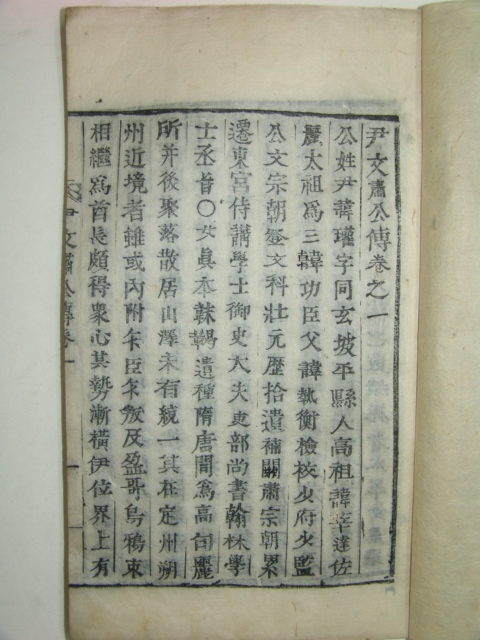 尹文肅公傳卷之一
公姓尹諱瓘字同玄坡平縣人高祖諱莘達佐
麗太祖爲三韓功臣父諱執衡檢校少府少監
公文宗朝登文科壯元歷拾遺補闕肅宗朝累
遷東宮侍講學士御史大夫吏部尚書翰林學
士丞旨○女眞本靺鞨遺種隋唐間爲高句麗
所并後聚落散居山澤未有統一其在定州朔
州近境者雖或內附乍臣乍叛及盈哥烏鴉束
相繼爲酋長頗得衆心其勢漸橫伊位界上有
尹文肅公傳卷一